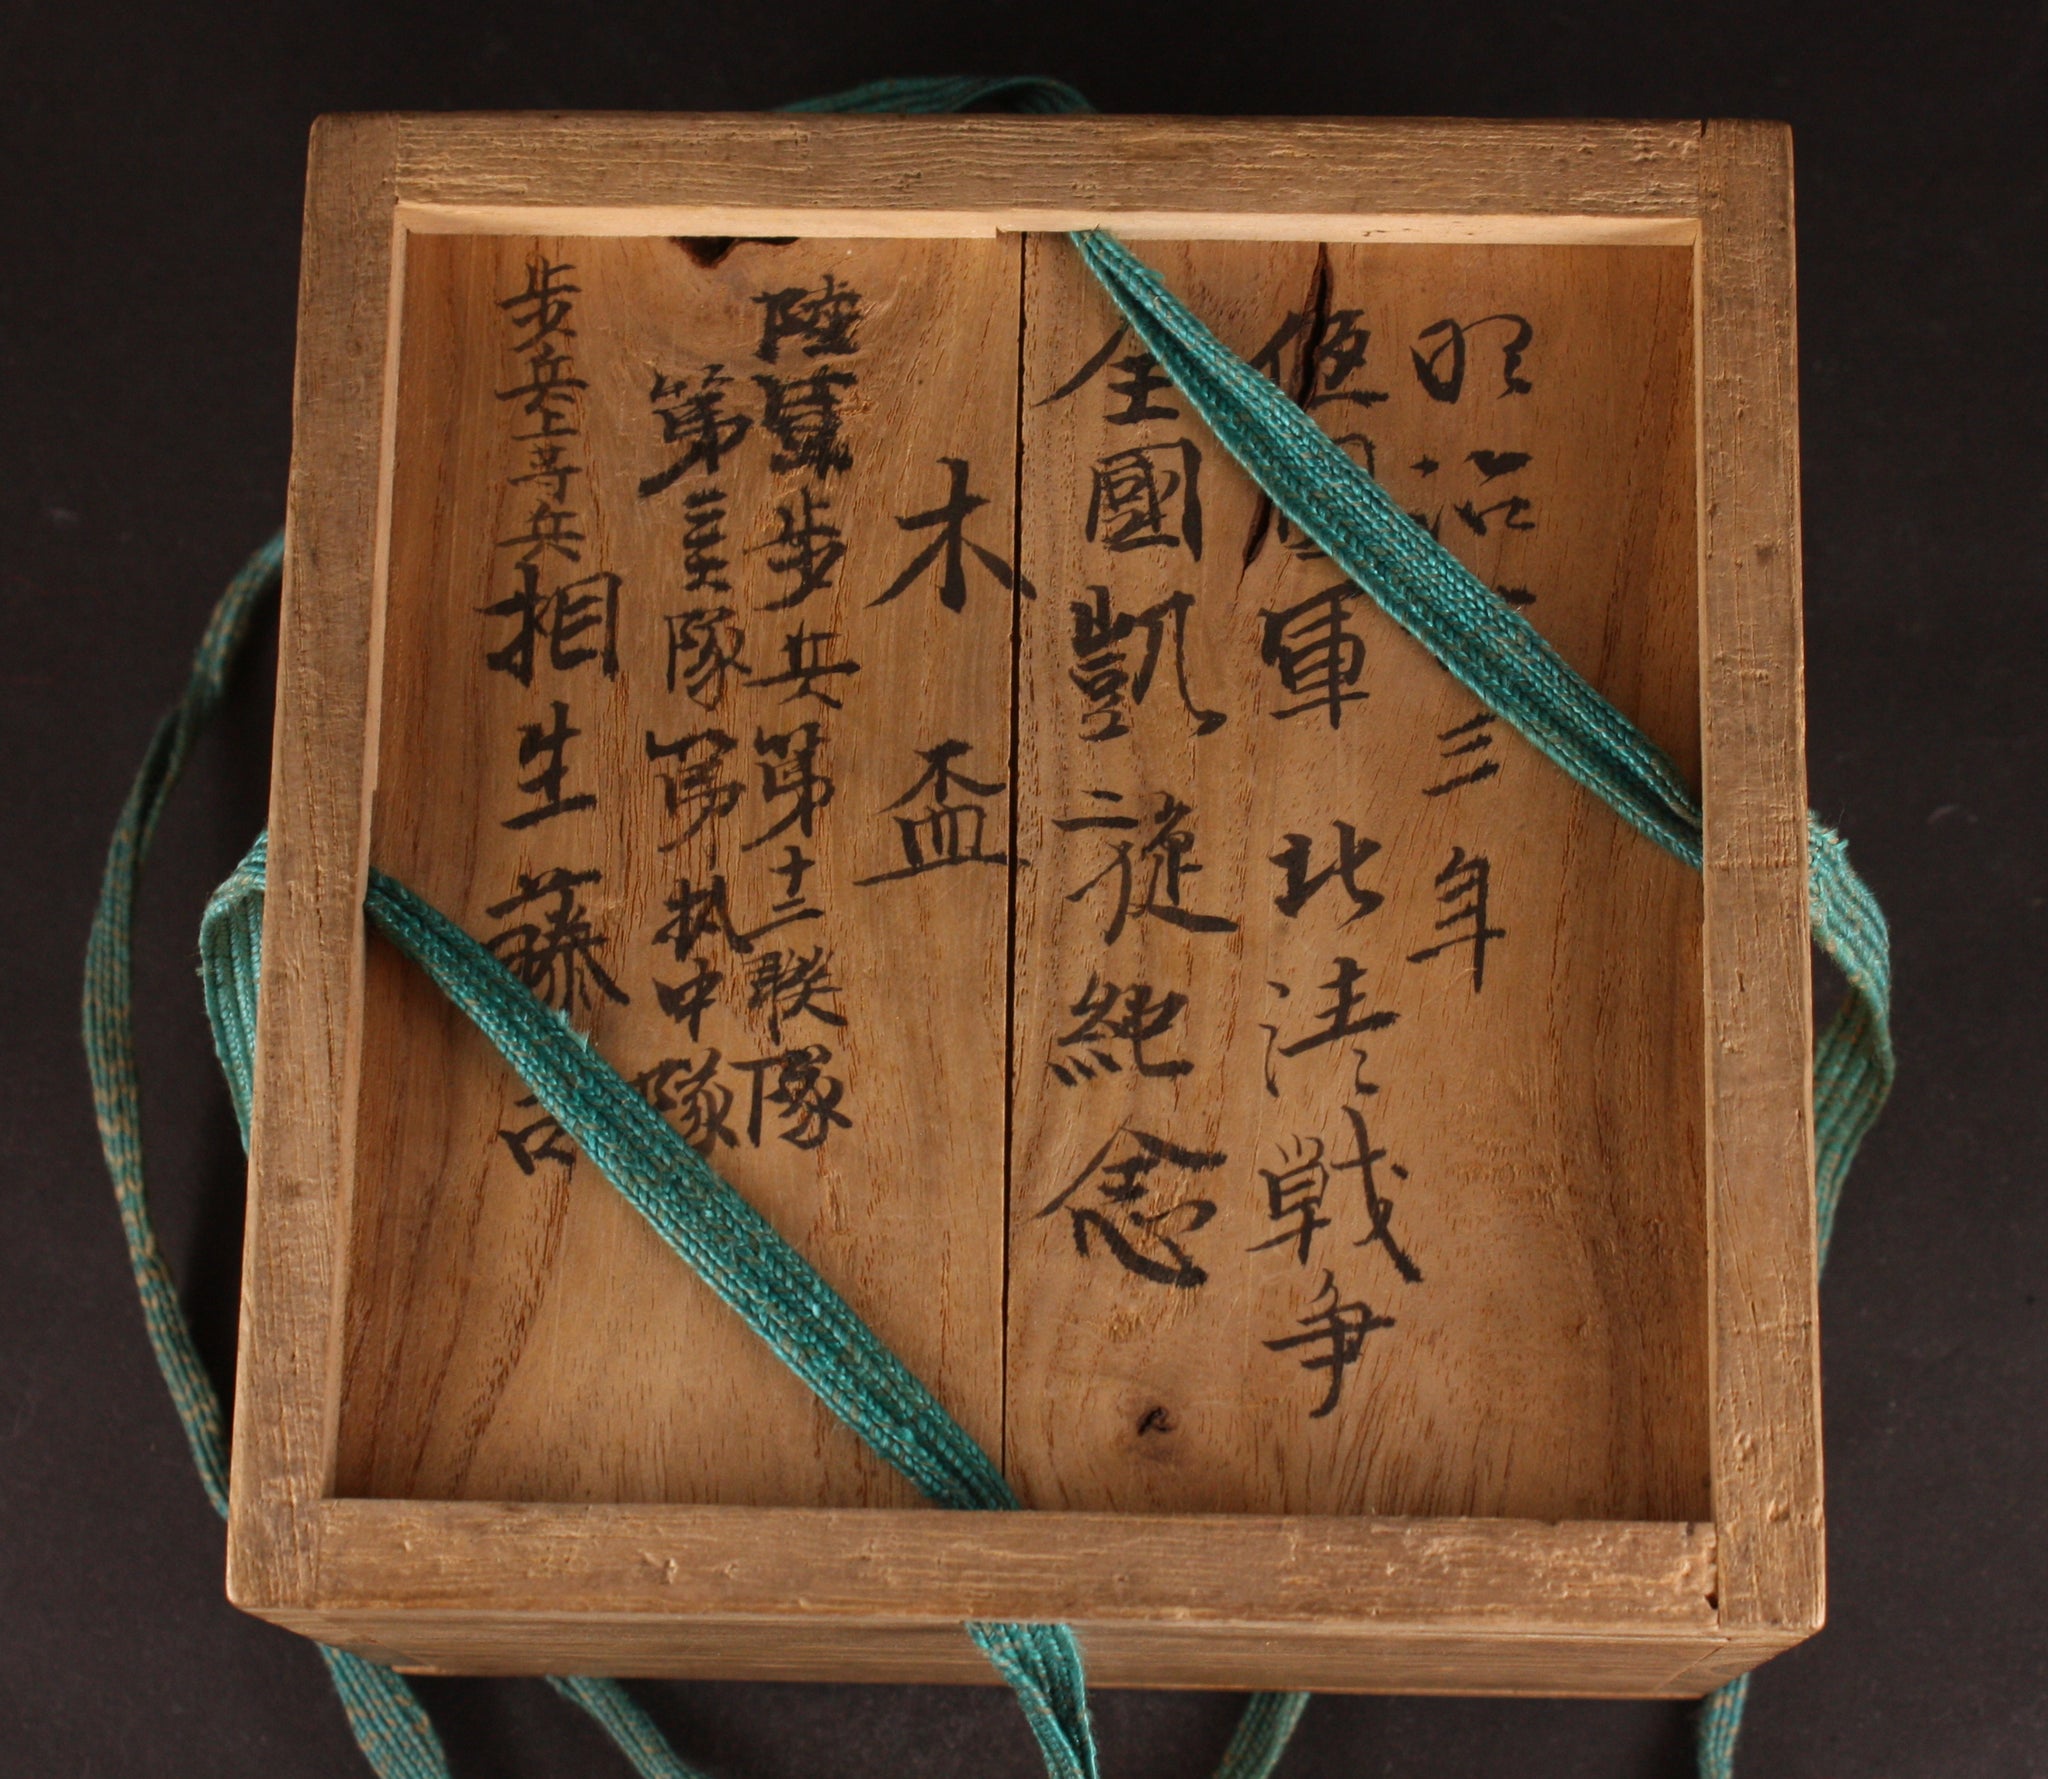 明治 三年
軍 北清戦争
全國凱二従紀念
木盃
陸軍歩兵第十二聯隊
第三大隊第 中隊
歩兵上等兵相生藤